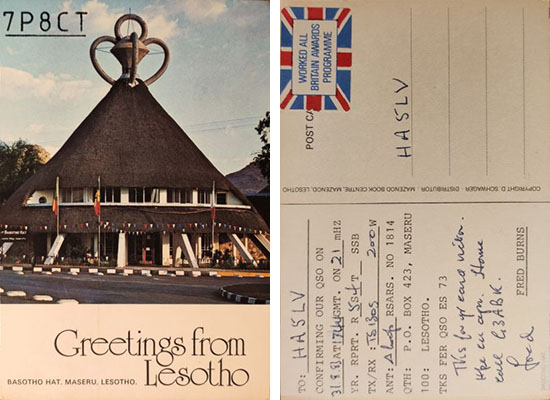 7P8CT
Greetings from
Lesotho
BASOTHO HAT. MASERU. LESOTHO.
WORKED ALL
BRITAIN AWARDS
PROGRAMME
POST CA
HA5LV
COPYRIGHT D. SCHWAGER - DISTRIBUTOR MAZENOD BOOK CENTRE, MAZENOD, LESOTHO
TO: HA5LV
CONFIRMING OUR QSO ON
GMT. ON 21 mHZ
YR. RPRT. R S T SSB
TX/RX: 200 W
ANT: RSARS. NO 1814
QTH: P.O. BOX 423, MASERU
100: LESOTHO.
TKS FER QSO ES 73
Tks for yr card
Home
call G3ABK.
Fred
FRED BURNS